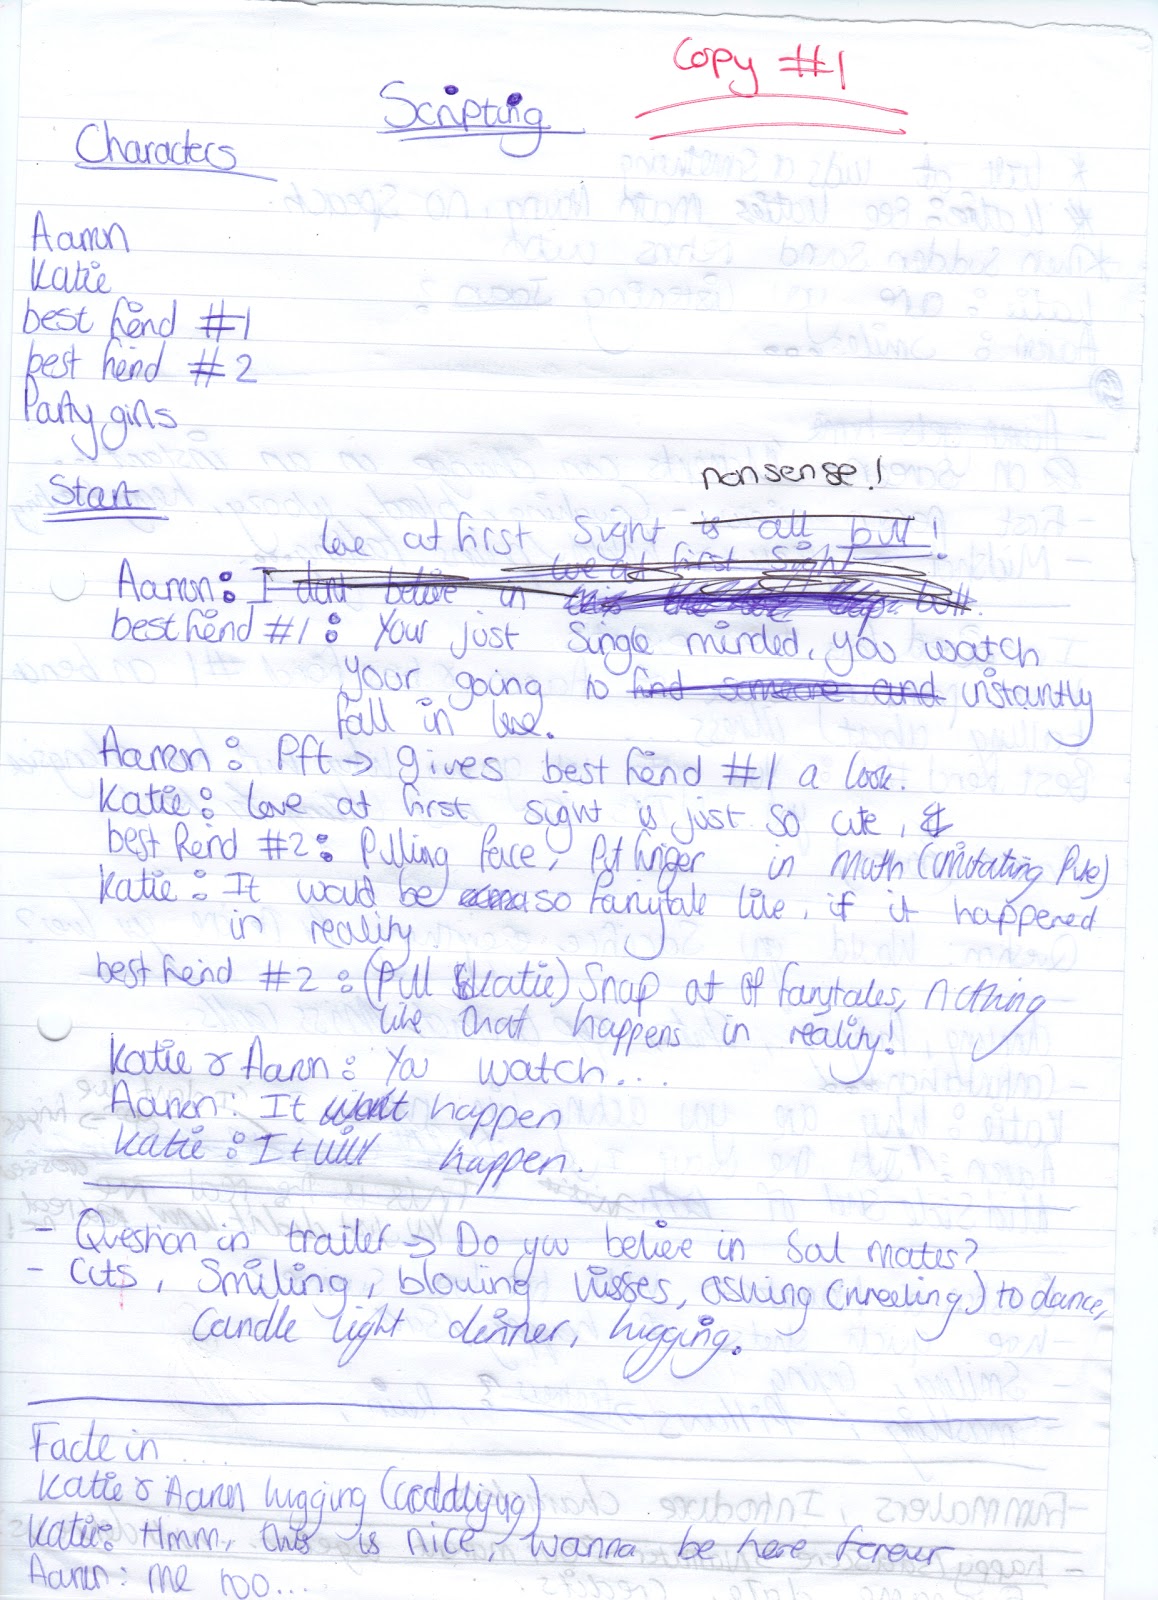 Copy #1
Scripting
Characters
Aaron
Katie
best freind #1
best freind #2
Party girls
Start
nonsense!
love at first sight is all bull!
love at first sight
Aaron: I dont believe in bull.
best freind #1: Your just single minded, you watch
your going to find someone and instantly
fall in love.
Aaron: Pft → gives best freind #1 a look.
Katie: love at first sight is just so cute,
best freind #2: Pulling face, Put finger in mouth (imitating Puke)
Katie: It would be so fairytale like, if it happened
in reality.
best freind #2: (Pull Katie) Snap at of fairytales, nothing
like that happens in reality!
Katie & Aaron: You watch...
Aaron: It wont happen
Katie: It will happen.
- Question in trailer → Do you believe in Soul mates?
- Cuts, Smiling, blowing kisses, asking (kneeling) to dance,
Candle light dinner, hugging.
Fade in...
Katie & Aaron hugging (cuddling)
Katie: Hmm, this is nice, wanna be here forever
Aaron: me too...